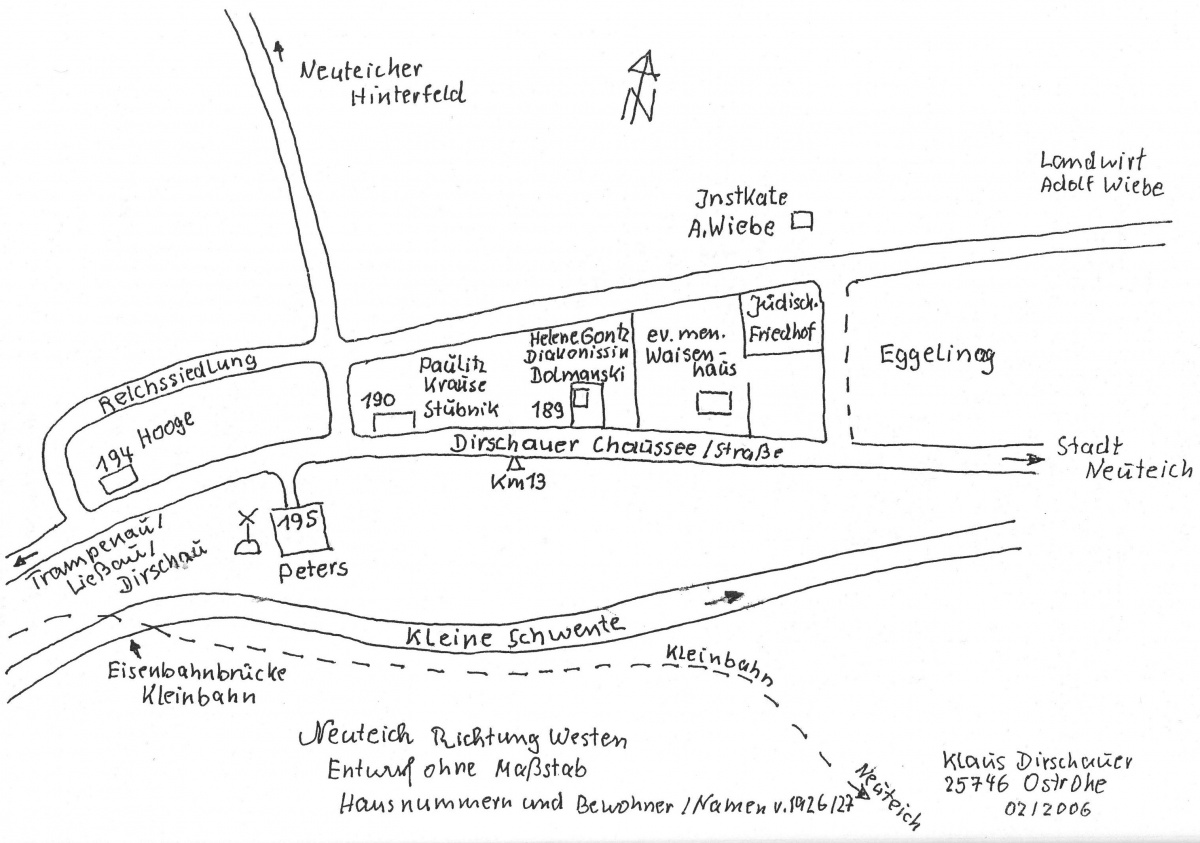 Neuteicher
Hinterfeld
N
Landwirt
Adolf Wiebe
Instkate
A. Wiebe
Jüdisch.
Friedhof
Helene Gontz
Diakonissin
Dolmanski
189
ev. men.
Waisen-
haus
Eggeling
Reichssiedlung
Paulitz
Krause
Stübnik
190
Hooge
194
Dirschauer Chaussee / Straße
Km 13
Stadt
Neuteich
195
Peters
Trampenau /
Ließau /
Dirschau
Kleine Schwente
Kleinbahn
Eisenbahnbrücke
Kleinbahn
Neuteich Richtung Westen
Entwurf ohne Maßstab
Hausnummern und Bewohner / Namen v. 1926/27
Neuteich
Klaus Dirschauer
25746 Ostrohe
02/2006